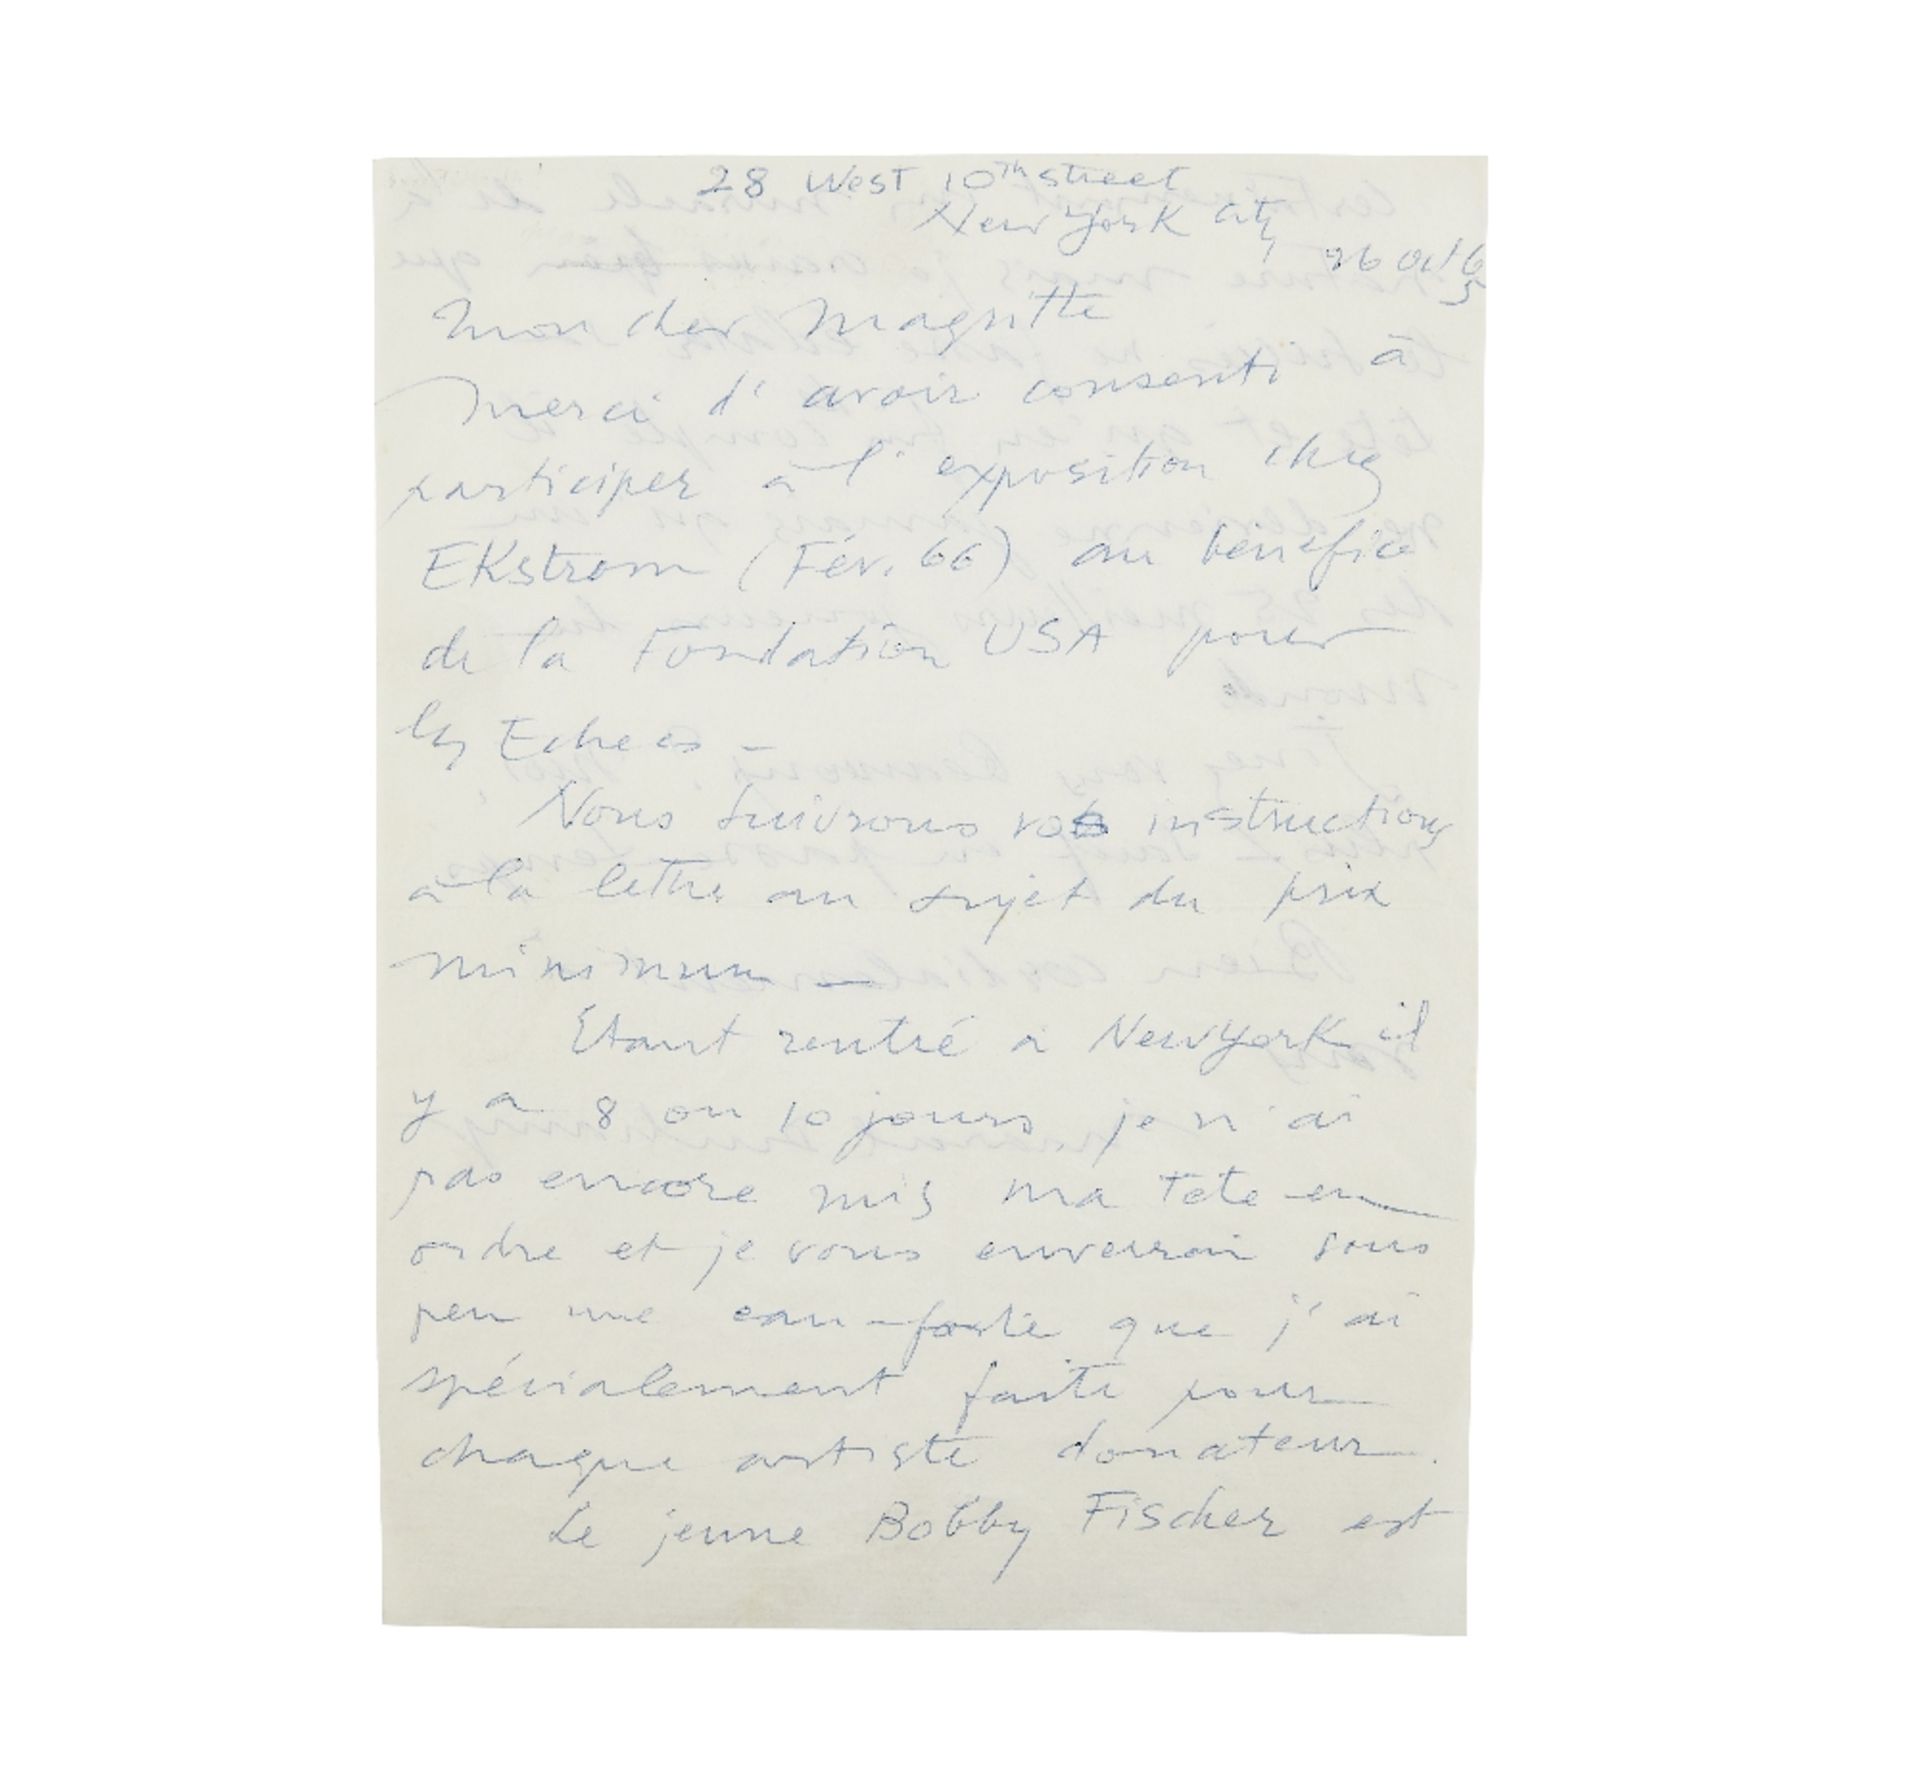 28 West 10th street
New York City
26 Oct 65
Mon cher Magritte
Merci d'avoir consenti à
participer à l'exposition chez
EKstrom (Fév. 66) au bénéfice
de la Fondation USA pour
les Echecs -
Nous suivrons vos instructions
à la lettre au sujet du prix
minimum —
Etant rentré à New York il
y a 8 ou 10 jours je n'ai
pas encore mis ma tete en
ordre et je vous enverrai sous
peu une eau-forte que j'ai
spécialement faite pour
chaque artiste donateur.
Le jeune Bobby Fischer est